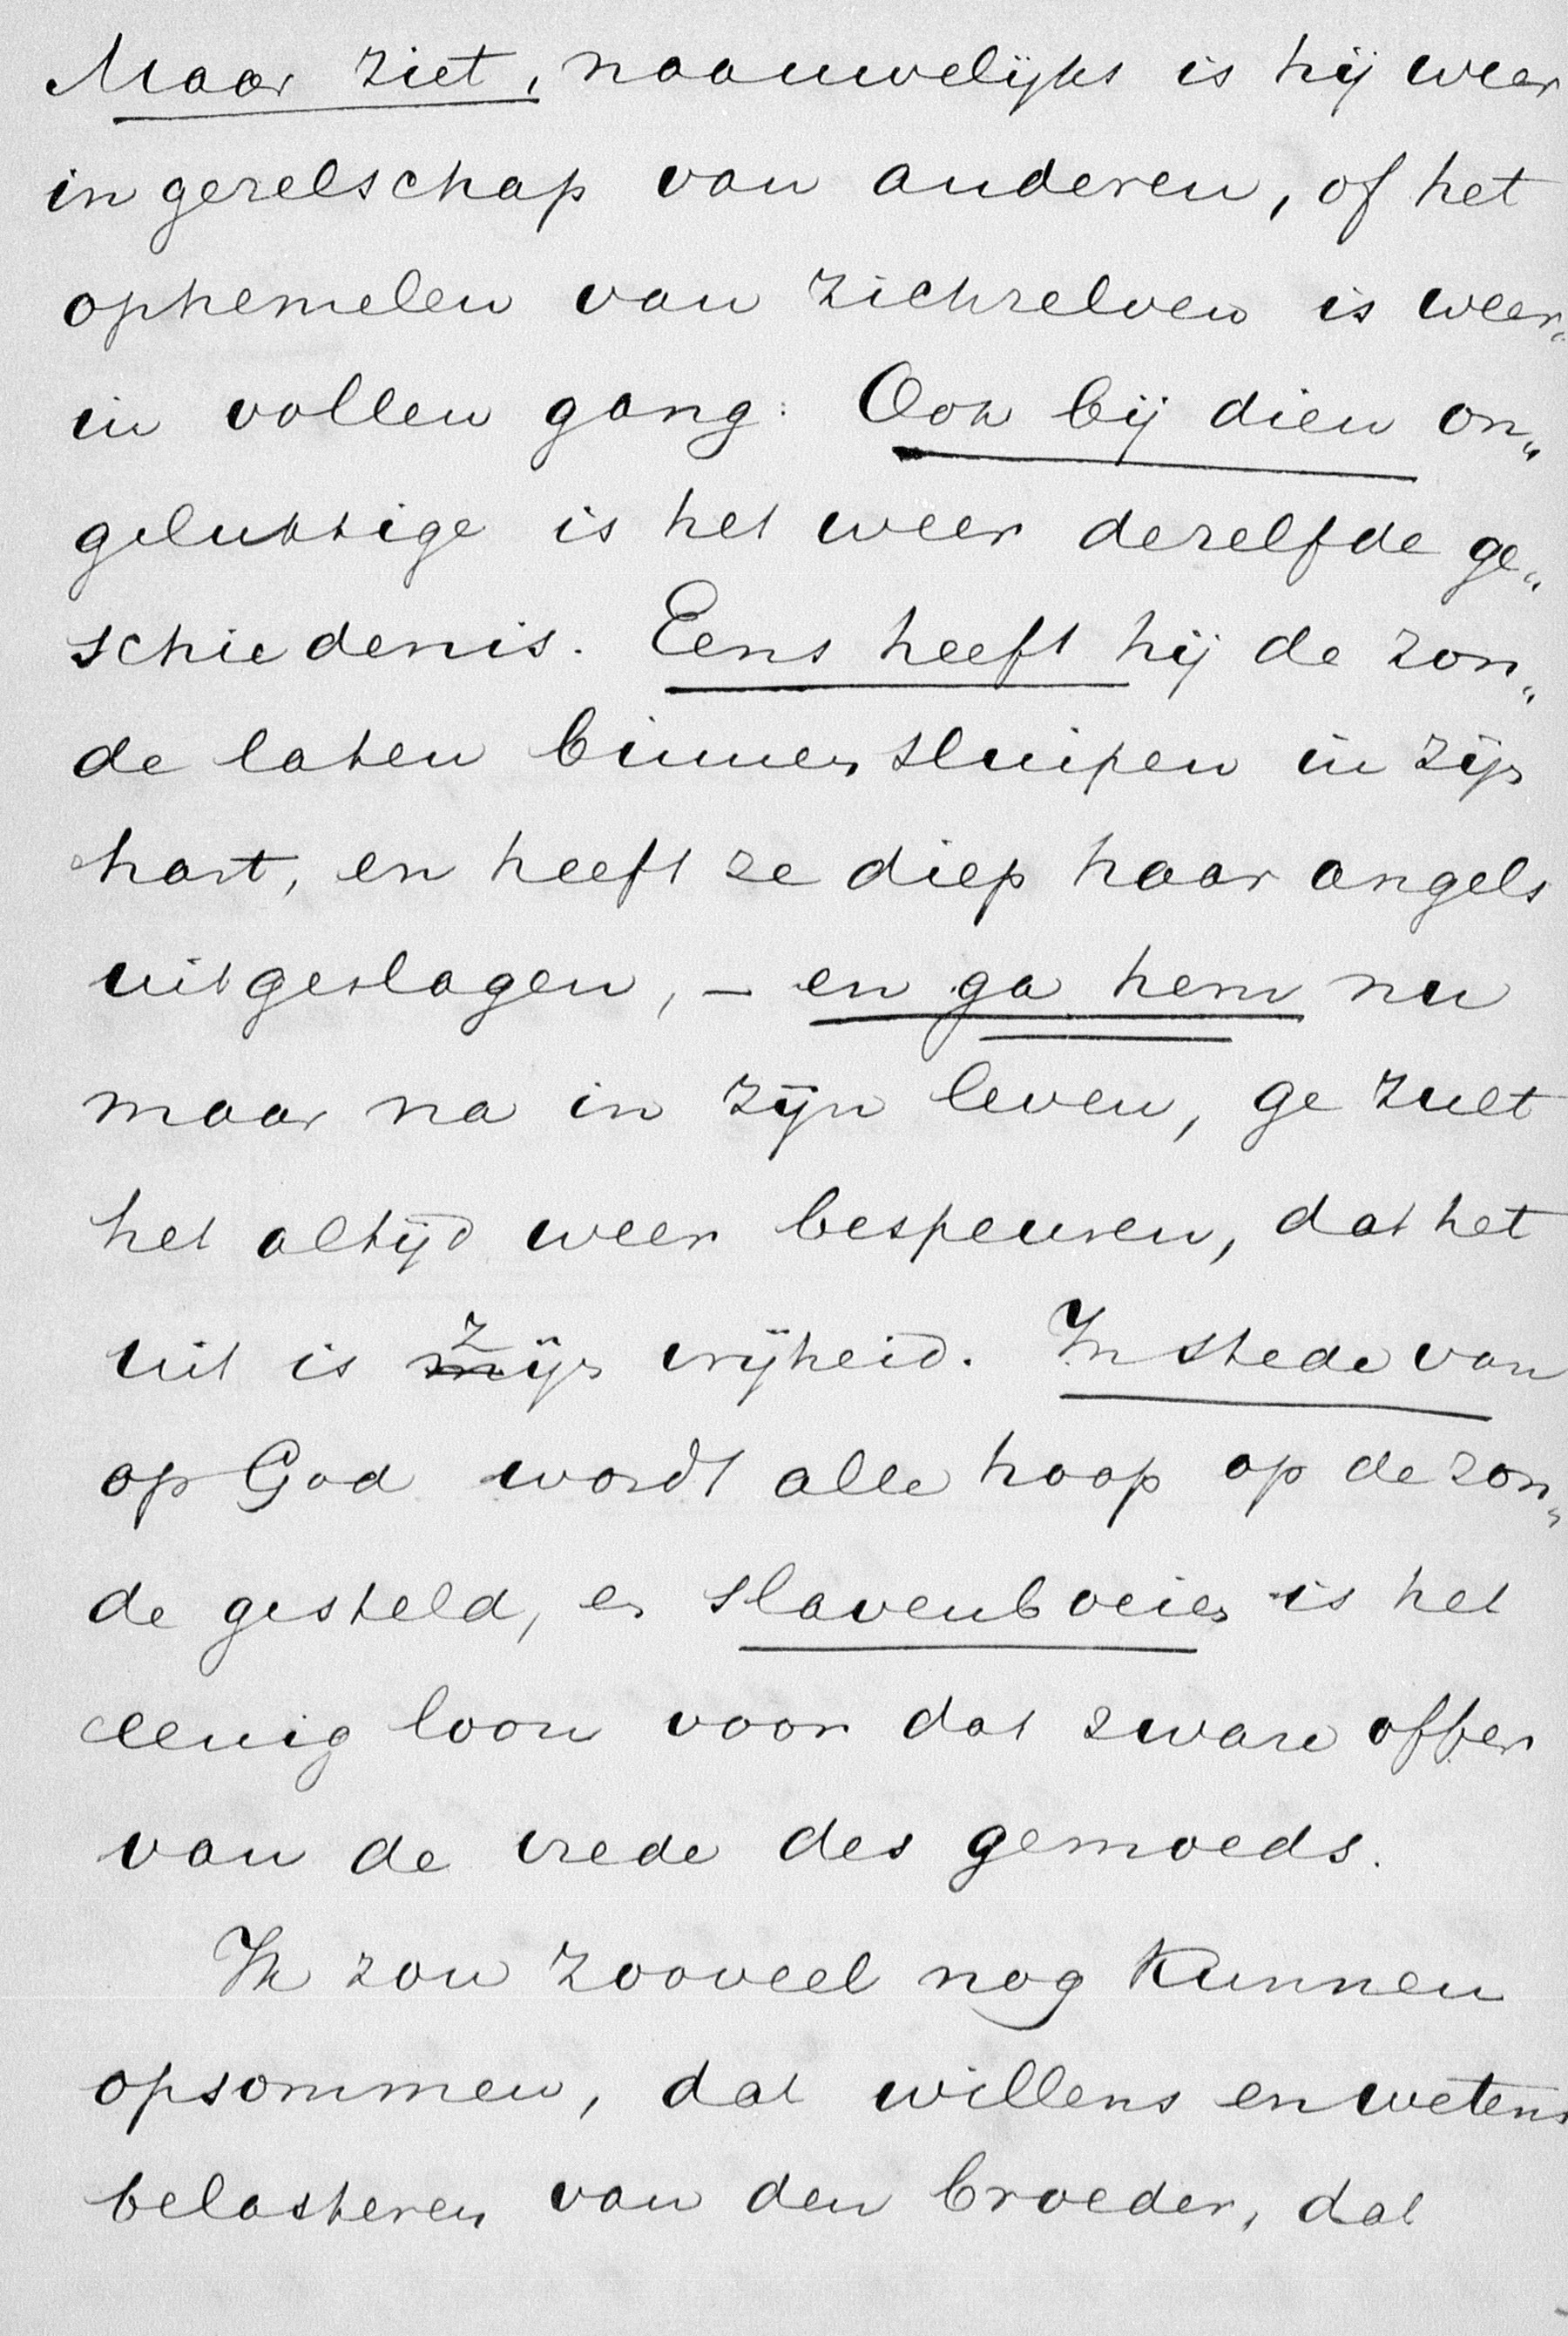 Maar ziet, naauwelijks is hij weer
in gezelschap van anderen, of het
ophemelen van zichzelven is weer
in vollen gang: Ook bij dien on„
gelukkige is het weer dezelfde ge„
schiedenis. Eens heeft hij de zon„
de laten binnensluipen in zijn
hart, en heeft ze diep haar angels
uitgeslagen, – en ga hem nu
maar na in zijn leven, ge zult
het altijd weer bespeuren, dat het
uit is zijn vrijheid. In stede van
op God wordt alle hoop op de zon„
de gesteld, en slavenboeien is het
eenig loon voor dat zware offer
van de vrede des gemoeds.
Ik zou zooveel nog kunnen
opsommen, dat willens en wetens
belasteren van den broeder, dat